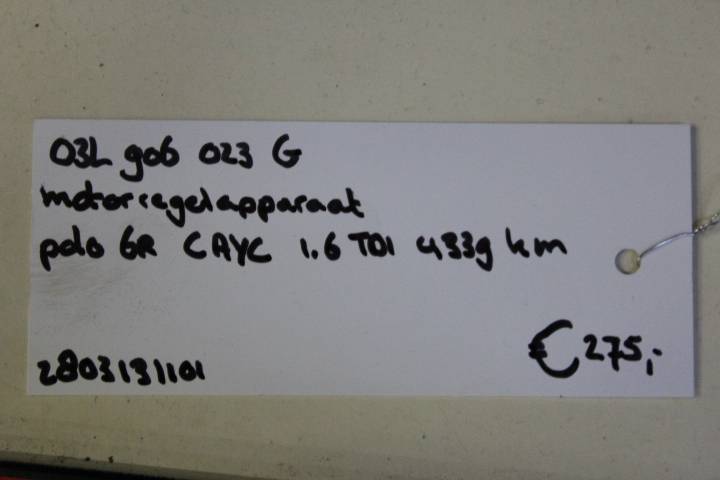 03L 906 023 G
motorregelapparaat
polo 6R CAYC 1.6 TDI 4339 km
2803131101
€ 275,-